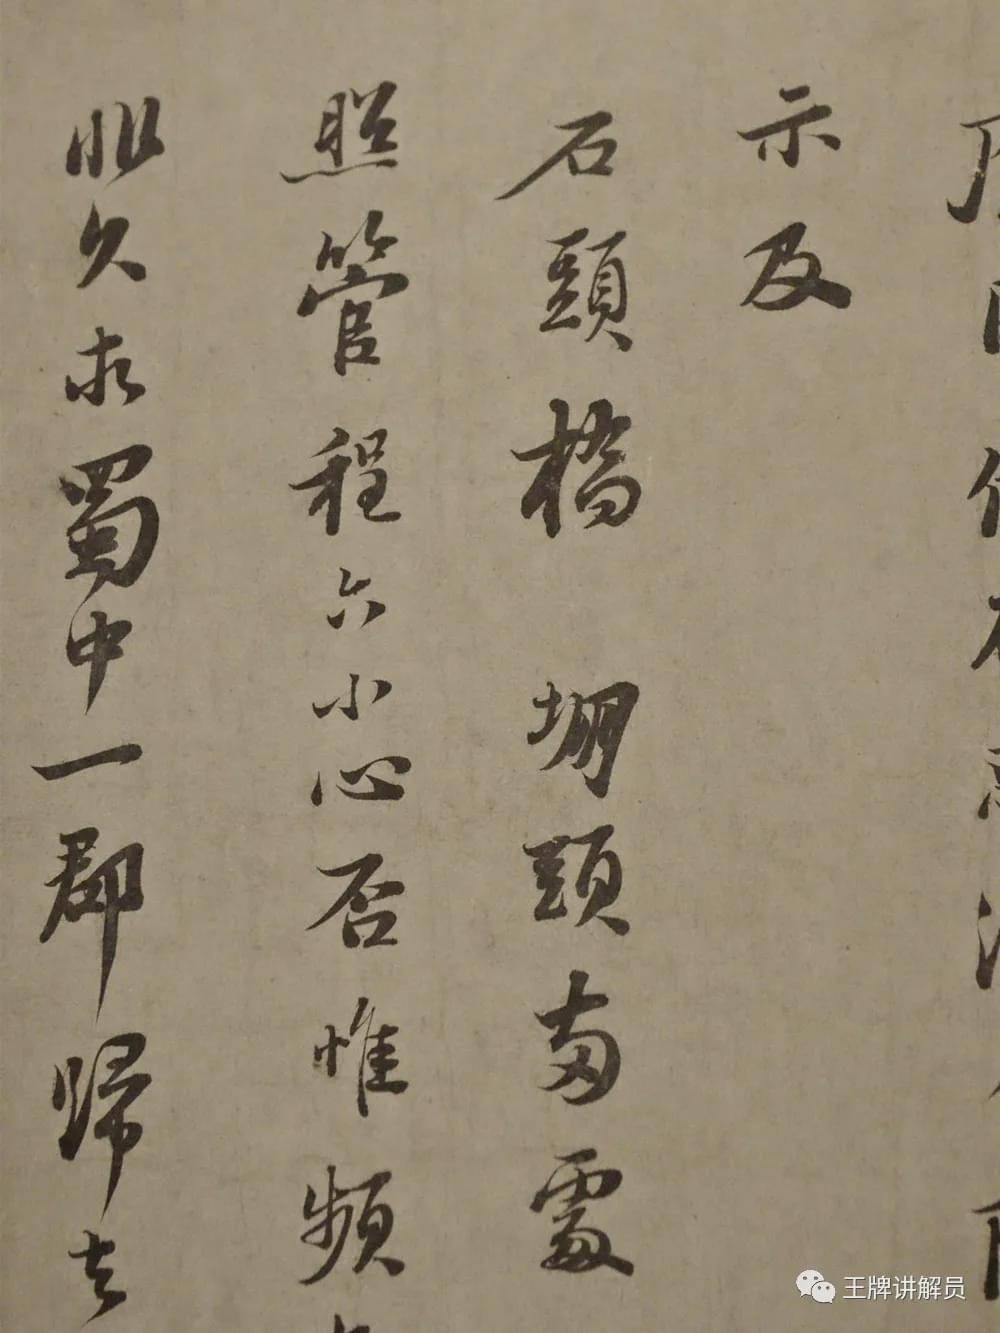 示及
石頭橋 堋頭兩處
照管程六小心否惟頻
非久求蜀中一郡歸去
王牌讲解员